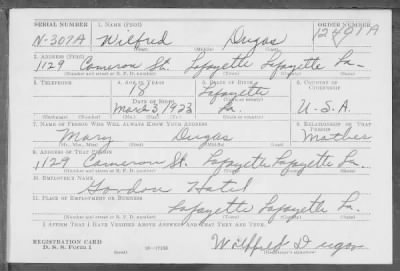 SERIAL NUMBER 1. NAME (Print) ORDER NUMBER
N-307A Wilfred Dugas 12491A
(First) (Middle) (Last)
2. ADDRESS (Print)
1129 Cameron St. Lafayette Lafayette La.
(Number and street or R. F. D. number) (Town) (County) (State)
3. TELEPHONE 4. AGE IN YEARS 5. PLACE OF BIRTH 6. COUNTRY OF CITIZENSHIP
18 Lafayette
(Town or county)
DATE OF BIRTH
March 3 1923 La. U-S.A.
(Mo.) (Day) (Yr.) (State or country)
7. NAME OF PERSON WHO WILL ALWAYS KNOW YOUR ADDRESS 8. RELATIONSHIP OF THAT PERSON
Mary Dugas Mother
(Mr., Mrs., Miss) (First) (Middle) (Last)
9. ADDRESS OF THAT PERSON
1129 Cameron St. Lafayette Lafayette La.
(Number and street or R. F. D. number) (Town) (County) (State)
10. EMPLOYER'S NAME
Gordon Hotel
11. PLACE OF EMPLOYMENT OR BUSINESS
Lafayette Lafayette La.
(Number and street or R. F. D. number) (Town) (County) (State)
I AFFIRM THAT I HAVE VERIFIED ABOVE ANSWERS AND THAT THEY ARE TRUE.
REGISTRATION CARD
D. S. S. Form 1 (over) 16-17105 Wilfred Dugas
(Registrant's signature)